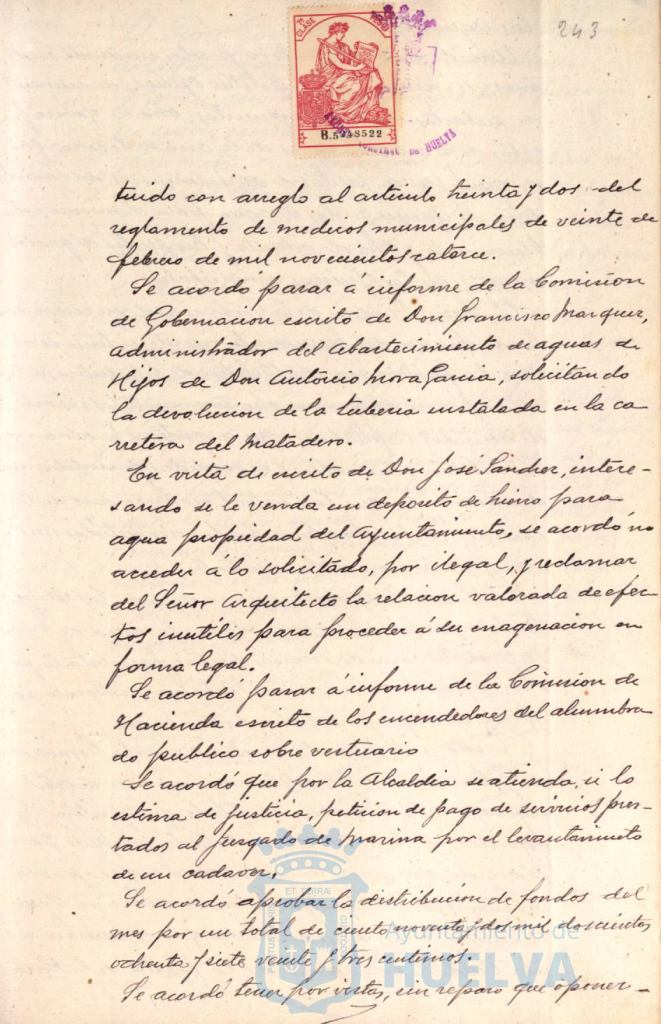 243
7ª CLASE
B.5248522
HUELVA
tuido con arreglo al articulo treinta y dos del
reglamento de medicos municipales de veinte de
febrero de mil novecientos catorce.
Se acordó pasar á informe de la Comision
de Gobernacion escrito de Don Francisco Marquez,
Administrador del Abastecimiento de aguas de
Hijos de Don Antonio Mora Garcia, solicitando
la devolucion de la tuberia instalada en la ca
rretera del Matadero.
En vista de escrito de Don José Sanchez, intere-
sando se le venda un deposito de hierro para
agua propiedad del Ayuntamiento, se acordó no
acceder á lo solicitado, por ilegal, y reclamar
del Señor Arquitecto la relacion valorada de efec-
tos inutiles para proceder á su enagenacion en
forma legal.
Se acordó pasar á informe de la Comision de
Hacienda escrito de los encendedores del alumbra
do publico sobre vestuario
Se acordó que por la Alcaldia se atienda, si lo
estima de justicia, peticion de pago de servicios pres-
tados al Juzgado de Marina por el levantamiento
de un cadaver.
Se acordó aprobar la distribucion de fondos del
mes por un total de ciento noventa y dos mil doscientos
ochenta y siete veinte y tres centimos.
Se acordó tener por vistas, sin reparo que oponer-
ET TERRÆ
PORTUS MARIS
CUSTODIA
Ayuntamiento de
HUELVA